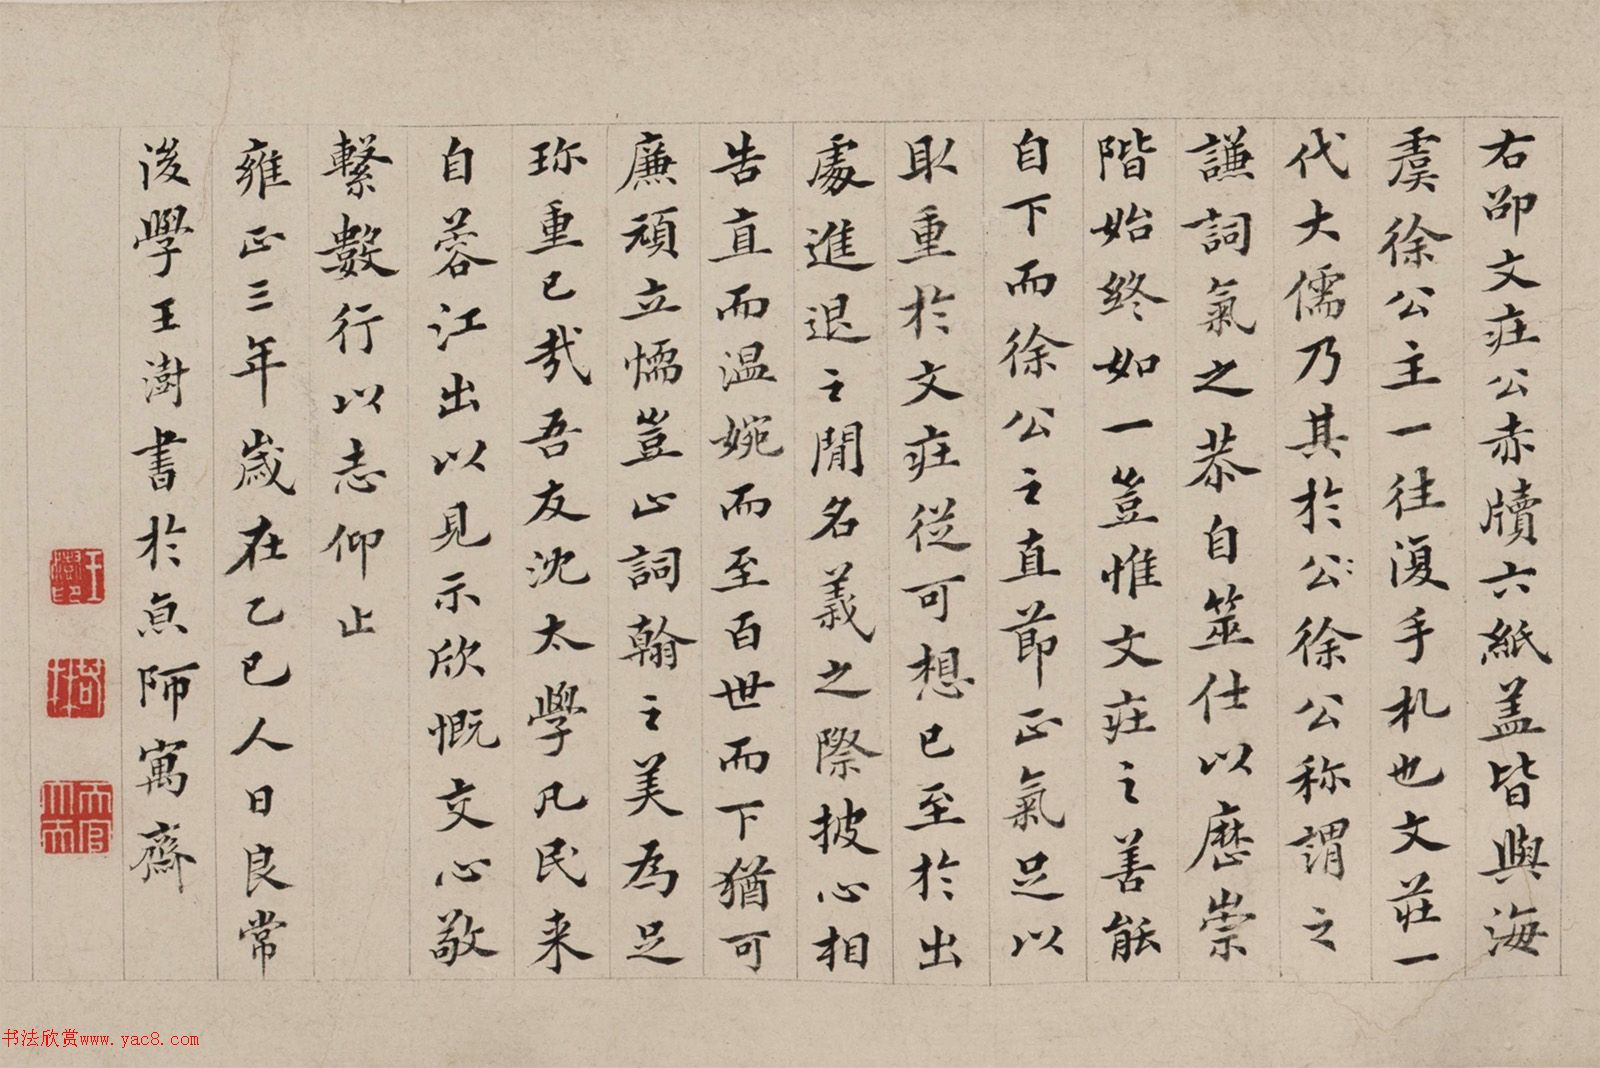 右邵文莊公赤牘六紙蓋皆與海
虞徐公主一往復手札也文莊一
代大儒乃其於公徐公称謂之
謙詞氣之恭自筮仕以歷崇
階始終如一豈惟文莊之善能
自下而徐公之直節正氣足以
取重於文莊従可想已至於出
處進退之間名義之際披心相
告直而温婉而至百世而下猶可
廉頑立懦豈止詞翰之美為足
珎重已哉吾友沈太學凡民来
自蓉江出以見示欣慨交心敬
繫數行以志仰止
雍正三年歲在乙巳人日良常
後學王澍書於魚師寓齋
王澍
书法欣赏www.yac8.com